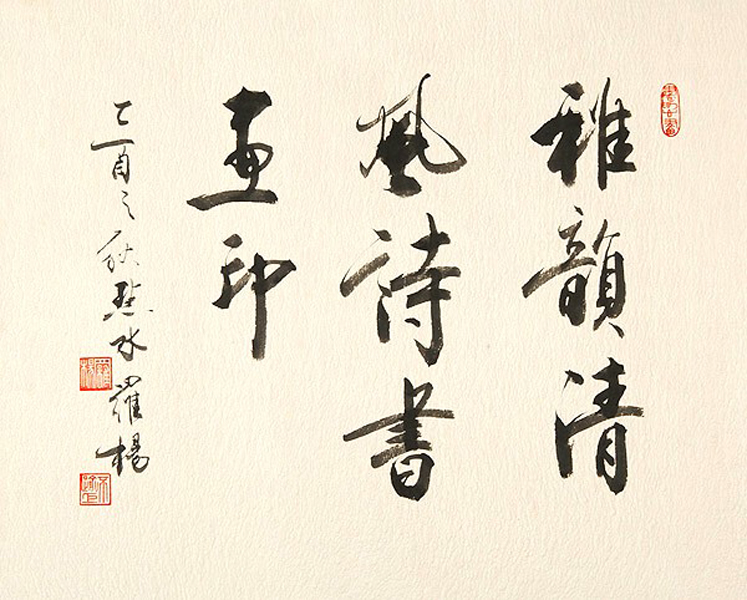 雅韻清
風詩書
畫印
乙酉之秋點水羅楊